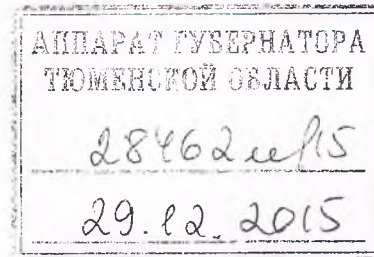 АППАРАТ ГУБЕРНАТОРА
ТЮМЕНСКОЙ ОБЛАСТИ
28462
29.12.2015